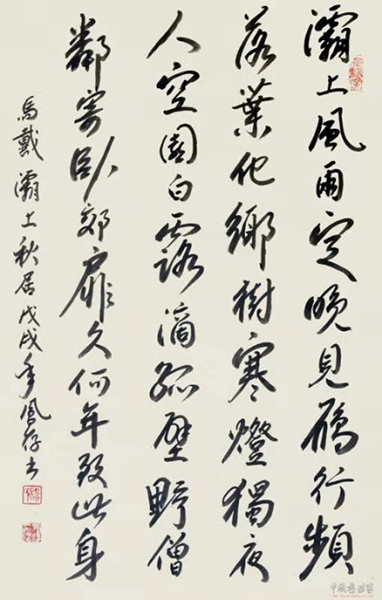 灞上風雨定晚見鴈行頻
落葉他鄉樹寒燈獨夜
人空園白露滴孤壁野僧
鄰寄臥郊扉久何年致此身
馬戴灞上秋居戊戌年存书